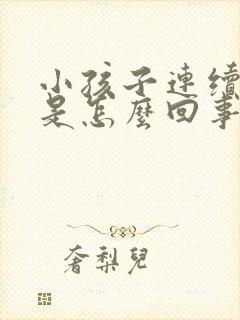 小孩子連續
是怎麼回事
奢梨兒